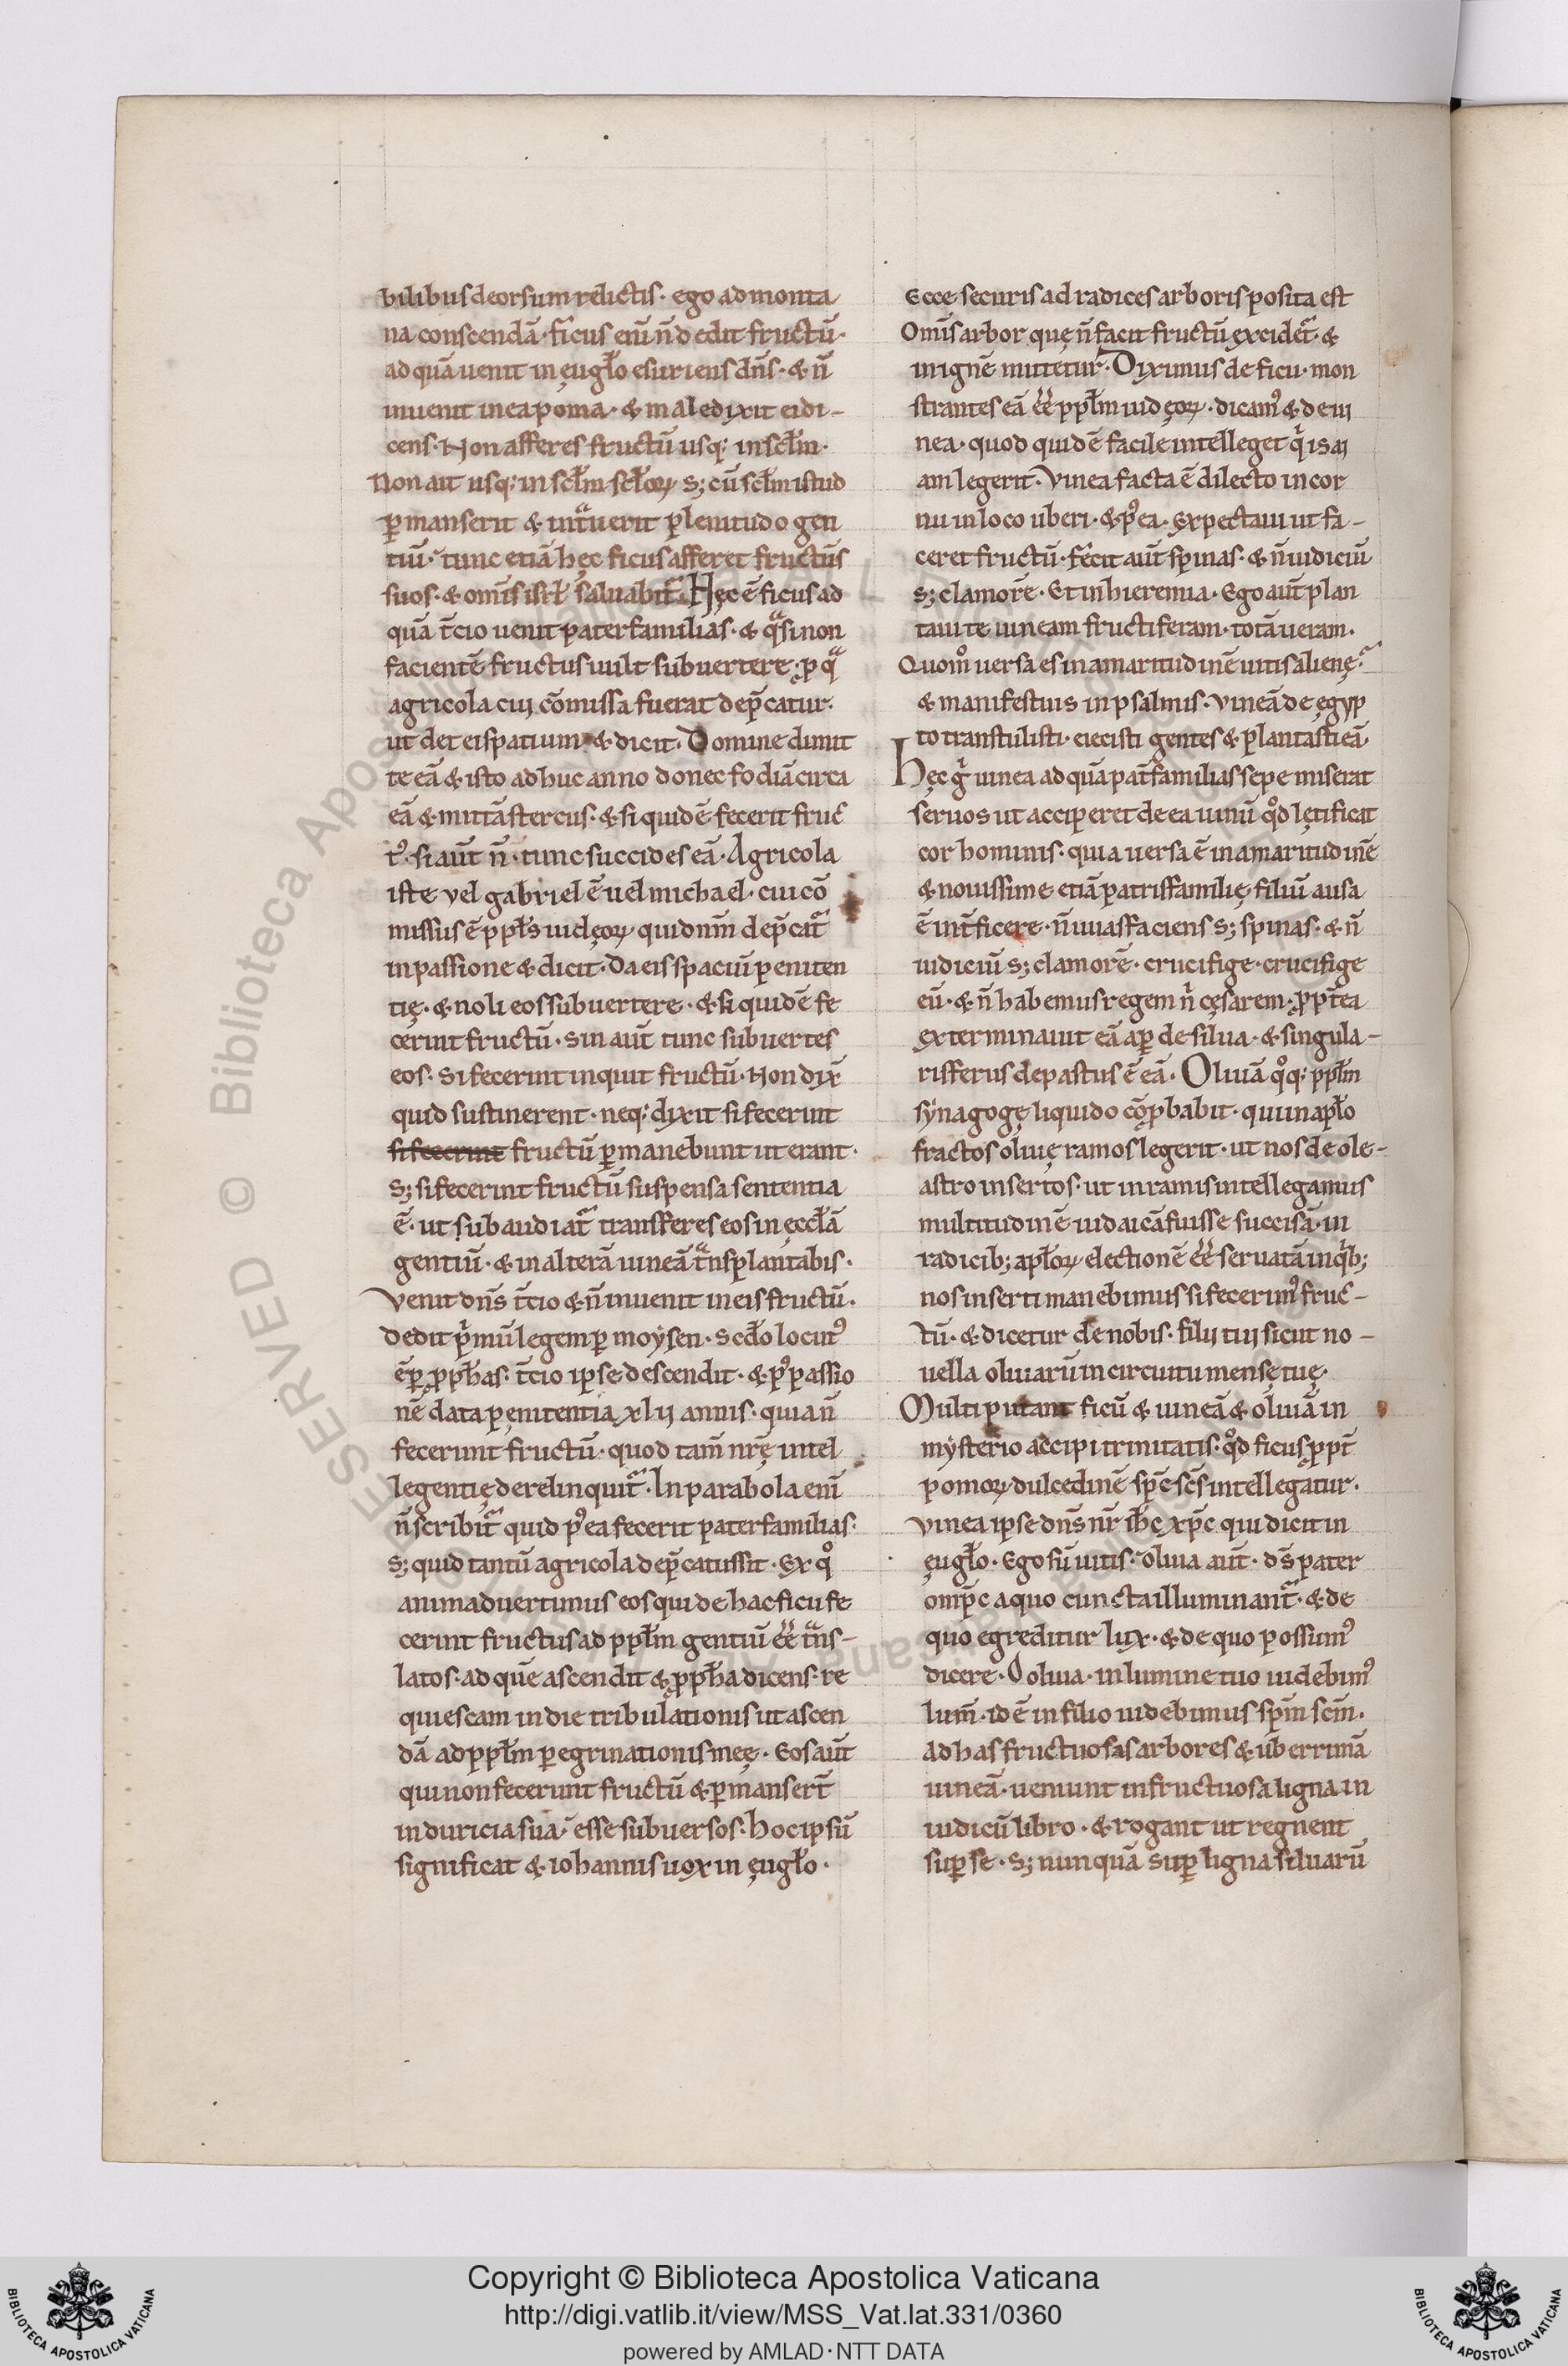 vilibus deorsum relictis· ego ad monta
na conscendā· fic̄us eni᷑ n̄ dedit fructū·
ad quā uenit in ęuglo̅ esuriens dn̄s· & n̄
inuenit in ea poma· & maledixit ei di-
cens· Non afferes fructū usq; in scl̄m·
Non ait usq; in scl̄m scl̄oꝝ s; cū scl̄m istud
p̱manserit & intᵃuerit plenitudo gen
tiū· tunc etiā hęc ficus afferet fructus
suos· & omīs isrl̄ saluabit᷑. Hęc ē ficus ad
quā t̄cio uenit paterfamilias· & qᵃsi non
facientē fructus uult subuertere; ꝓ qᵃ
agricola cui cōmissa fuerat dep̄catur·
ut det ei spatium & dicit· Domine dimit
te eā & isto adhuc anno donec fodiā circa
eā & mittā stercus· & si quidē fecerit fruc̄
t᾿· si aūt n̄· tunc succides eā· Agricola
iste vel gabriel ē uel michael· cui cō
missus ē ppl̄s iudęoꝝ qui dn̄m dep̄cat᷑
in passione & dicit· Da eis spaciū peniten
tię· & noli eos subuertere· & si quidē fe
cerint fructū· sin aūt tunc subuertes
eos· Si fecerint inquit fructū· Non dix̄
quid sustinerent· neq; dixit si fecerint
si fecerint fructū p̱manebunt ut erant·
S; si fecerint fructū suspensa sententia
ē· ut subaudiat᷑ transferes eos in ęccl̄ā
gentiū· & in alterā uineā tᵃnsplantabis·
Venit dn̄s t̄cio & n̄ inuenit in eis fructū·
dedit pⁱmū legem p̱ moysen· scd̄o locut᾿
ē p̱ ꝓph̄as· t̄cio ipse descendit· & p᾿ passio
nē data penitentia xlij annis· quia n̄
fecerunt fructū· quod tam̄ nr̄ę intel
legentię derelinquit᷑· In parabola eni᷑
n̄ scribit᷑ quid p᾿ea fecerit paterfamilias·
S; quid tantū agricola dep̄catus sit· Ex qᵒ
animaduertimus eos qui de hac ficu fe
cerint fructus ad ppl̄m gentiū ee᷑ tᵃns-
latos· ad quē ascendit & ꝓph̄a dicens· re
quiescam in die tribulationis ut ascen
dā ad ppl̄m peregrinationis meę· Eos aūt
qui non fecerunt fructū & p̱mansert̄
in duricia sua· esse subuersos· hoc ipsū
significat & iohannis uox in ęuglo̅·
Ecce securis ad radices arboris posita est
Omīs arbor quę n̄ facit fructū excidet᷑· &
in ignē mittetur· Diximus de ficu· mon
strantes eā ee᷑ ppl̄m iudęoꝝ· dicam᾿ & de ui
nea· quod quidē facile intelleget qⁱ isai
am legerit· Vinea facta ē dilecto in cor
nu in loco uberi· & p᾿ea· Expectaui ut fa-
ceret fructū· fec̄it aūt spinas· & n̄ iudiciū
s; clamorē· Et in hieremia· Ego aūt plan
taui te uineam fructiferam· totā ueram·
Quom̊ uersa es in amaritudinē uitis alienę·
& manifestius in psalmis· Vineā de ęgyp
to transtulisti· eiecisti gentes & plantasti eā·
Hęc gⁱ uinea ad quā pat̄familias sepe miserat
seruos ut acciperet de ea uinū qᵒd lętificat
cor hominis· quia uersa ē in amaritudinē
& nouissime etiā patrisfamilię filiū ausa
ē int̄ficere· n̄ uuas faciens s; spinas· & n̄
iudiciū s; clamorē· crucifige· crucifige
eū· & n̄ habemus regem nⁱ cęsarem· ꝓpt̄ea
exterminauit eā ap̱ de silua· & singula-
ris ferus depastus ē eā· Oliuā qᵒq; ppl̄m
synagogę liquido cōꝓbabit· qui in apl̄o
fractos oliuę ramos legerit· ut nos de ole-
astro insertos· ut in ramis intellegamus
multitudinē iudaicā fuisse succisā· in
radicib; apl̄oꝝ electionē ee᷑ seruatā in qⁱb;
nos inserti manebimus si fecerim᾿ fruc̄-
tū· & dicetur de nobis· filij tui sicut no-
uella oliuarū in circuitu mensę tuę·
Multi putant ficū & uineā & oliuā in
mysterio accipi trinitatis· qᵒd ficus ꝓpt̄
pomoꝝ dulcedinē spc̄ sc̄s intellegatur·
vinea ipse dn̄s nr̄ ih̄c xp̄c qui dicit in
ęuglo̅· Ego sū uitis· Oliua aūt· ds̄ pater
omp̄c a quo cuncta illuminant᷑· & de
quo egreditur lux· & de quo possum᾿
dicere· O oliua· in lumine tuo uidebim᾿
lum̄· id ē in filio uidebimus spm̄ scm̄·
Ad has fructuosas arbores & uberrimā
uineā· ueniunt infructuosa ligna in
iudicū libro· & rogant ut regnent
sup̱ se· S; nunquā sup̱ ligna siluarū
Copyright © Biblioteca Apostolica Vaticana
http://digi.vatlib.it/view/MSS_Vat.lat.331/0360
powered by AMLAD·NTT DATA
BIBLIOTECA APOSTOLICA VATICANA
BIBLIOTECA APOSTOLICA VATICANA